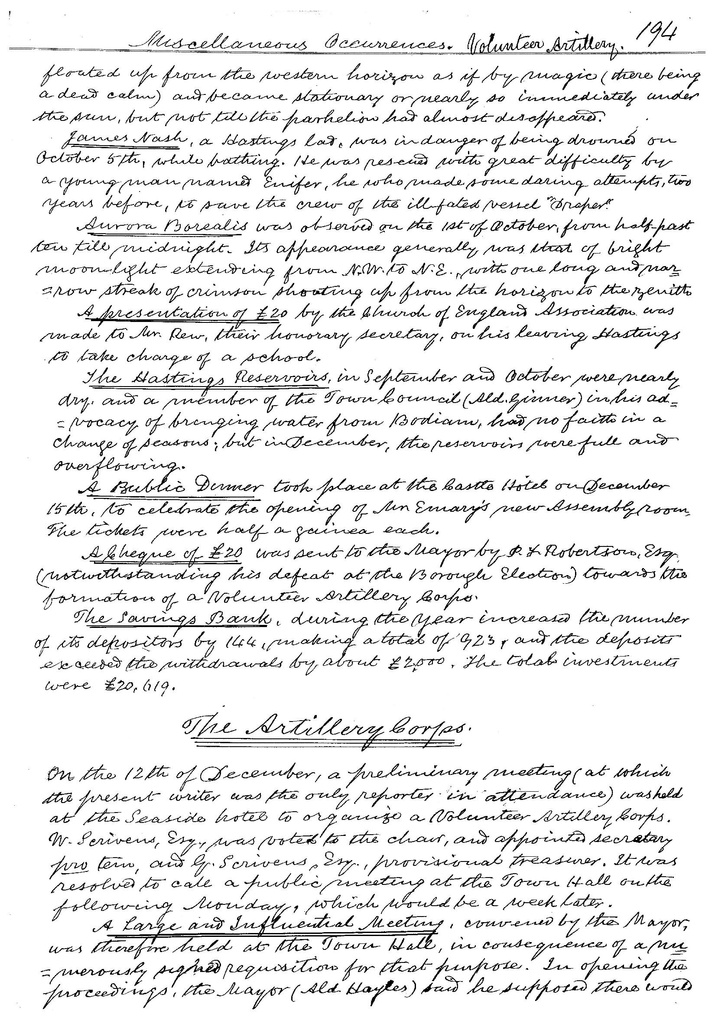 Miscellaneous Occurrences. Volunteer Artillery. 194
floated up from the western horizon as if by magic (there being
a dead calm) and became stationary or nearly so immediately under
the sun, but not till the parhelion had almost disappeared.
James Nash, a Hastings lad, was in danger of being drowned on
October 5th, while bathing. He was rescued with great difficulty by
a young man named Enifer, he who made some daring attempts, two
years before, to save the crew of the ill-fated vessel "Draper."
Aurora Borealis was observed on the 1st of October, from half-past
ten till midnight. Its appearance generally was that of bright
moonlight extending from N.W. to N.E., with one long and nar=
=row streak of crimson shooting up from the horizon to the zenith.
A presentation of £20 by the Church of England Association was
made to Mr. Rew, their honorary secretary, on his leaving Hastings
to take charge of a school.
The Hastings Reservoirs, in September and October were nearly
dry. and a member of the Town Council (Ald. Ginner) in his ad=
=vocacy of bringing water from Bodiam, had no faith in a
change of seasons; but in December, the reservoirs were full and
overflowing.
A Public Dinner took place at the Castle Hotel on December
15th, to celebrate the opening of Mr. Emary's new Assembly room.
The tickets were half a guinea each.
A Cheque of £20 was sent to the Mayor by P. F. Robertson, Esq.
(notwithstanding his defeat at the Borough Election) towards the
formation of a Volunteer Artillery Corps.
The Savings Bank, during the year increased the number
of its depositors by 144, making a total of 923, and the deposits
exceeded the withdrawals by about £2,000. The total investments
were £20,619.
The Artillery Corps.
On the 12th of December, a preliminary meeting (at which
the present writer was the only reporter in attendance) was held
at the Seaside hotel to organize a Volunteer Artillery Corps.
W. Scrivens, Esq., was voted to the chair, and appointed secretary
pro tem, and G. Scrivens, Esq., provisional treasurer. It was
resolved to call a public meeting at the Town Hall on the
following Monday, which would be a week later.
A Large and Influential Meeting, convened by the Mayor,
was therefore held at the Town Hall, in consequence of a nu=
=merously signed requisition for that purpose. In opening the
proceedings, the Mayor (Ald Hayles) said he supposed there would